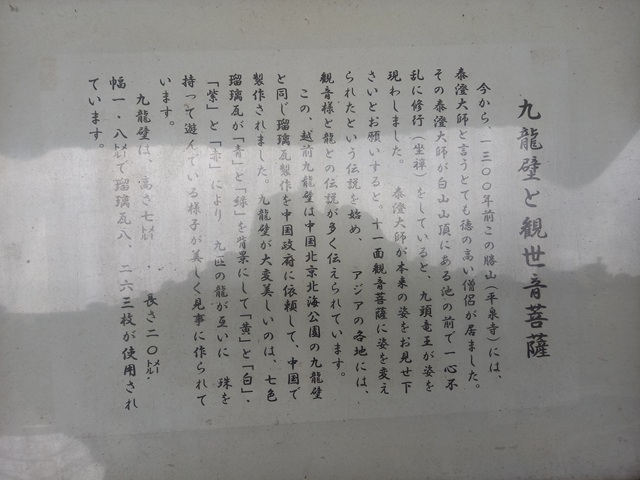 九龍壁と観世音菩薩
今から、一三〇〇年前この勝山(平泉寺)には、
泰澄大師と言うとても徳の高い僧侶が居ました。
その泰澄大師が白山山頂にある池の前で一心不
乱に修行(坐禅)をしていると、九頭竜王が姿を
現わしました。 泰澄大師が本来の姿をお見せ下
さいとお願いすると。十一面観音菩薩に姿を変え
られたという伝説を始め、 アジアの各地には、
観音様と龍との伝説が多く伝えられています。
この、越前九龍壁は中国北京北海公園の九龍壁
と同じ瑠璃瓦製作を中国政府に依頼して、中国で
製作されました。九龍壁が大変美しいのは、七色
瑠璃瓦が「青」と「緑」を背景にして「黄」と「白」、
「紫」と「赤」により、九匹の龍が互いに 珠を
持って遊んでいる様子が美しく見事に作られて
います。
九龍壁は、高さ七㍍ ・ 長さ二〇㍍・
幅一・八㍍で瑠璃瓦八 二六三枚が使用され
ています。